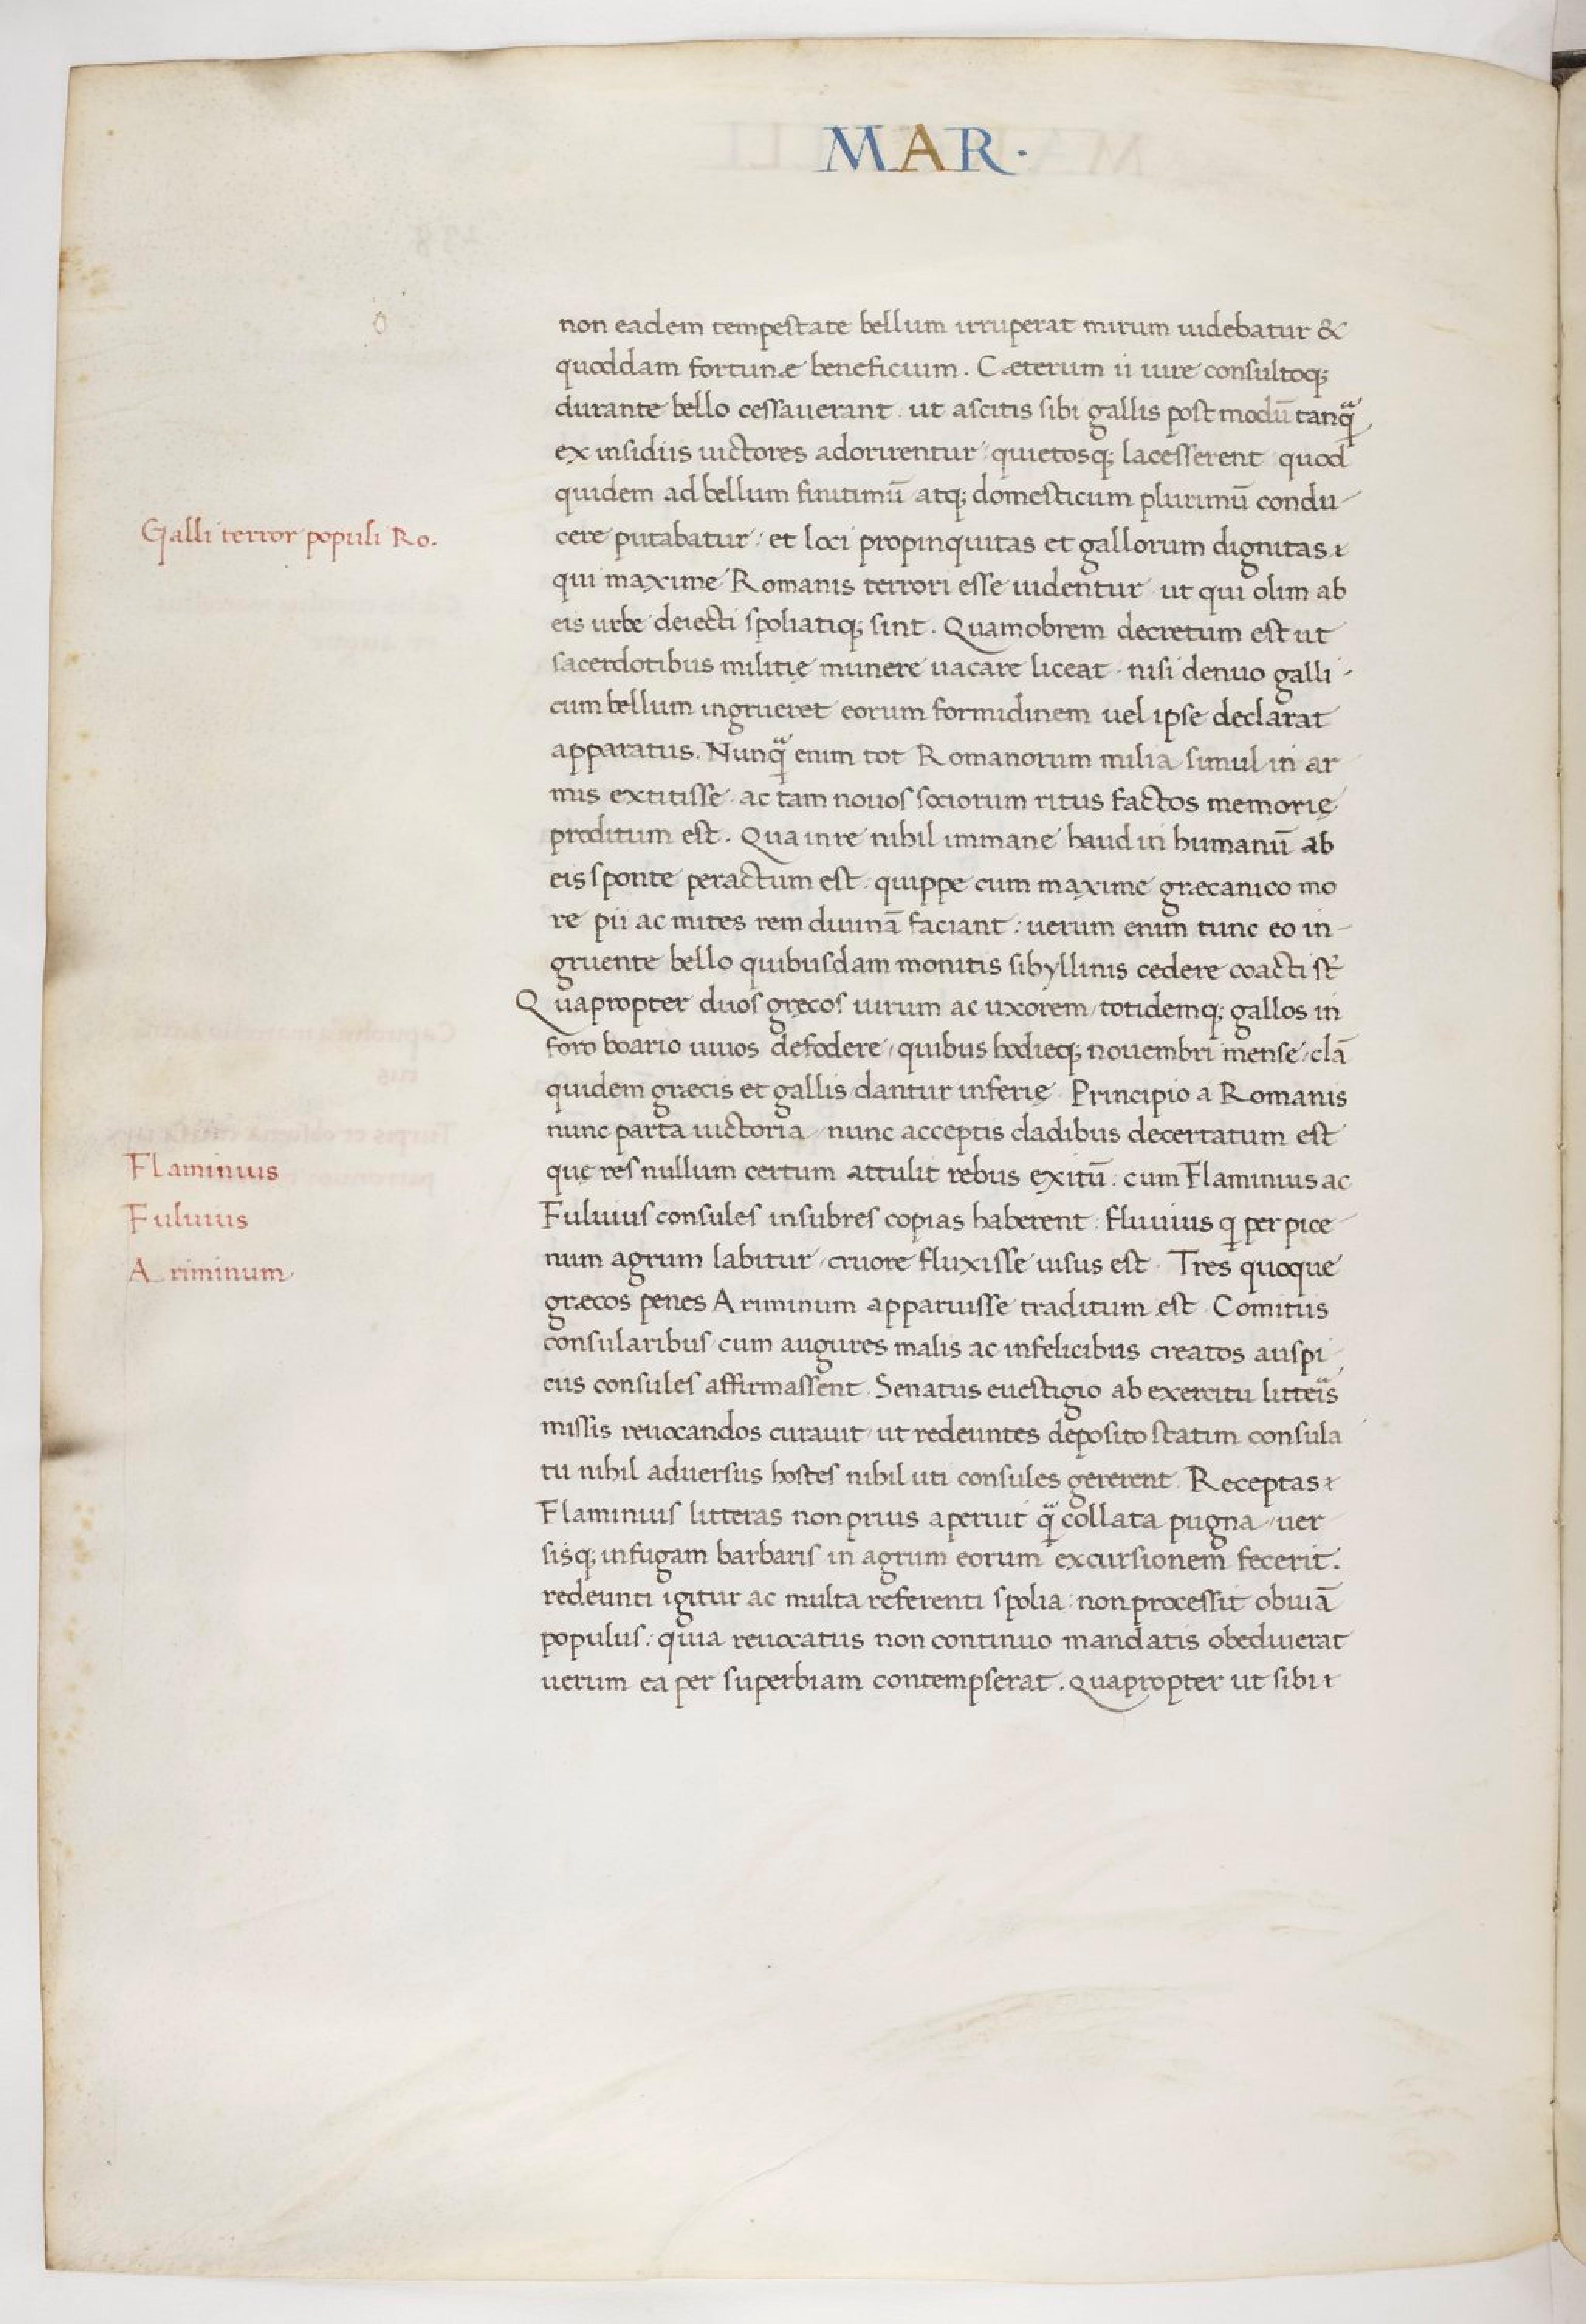 MAR·
non eadem tempestate bellum irruperat mirum uidebatur &
quoddam fortunæ beneficium. Cæterum ii iure consultoq;
durante bello cessauerant. ut ascitis sibi gallis post modū tanq̄
ex insidiis uictores adorirentur: quietosq; lacesserent quod
quidem ad bellum finitimū atq; domesticum plurimū condu-
Galli terror populi Ro.
cere putabatur: et loci propinquitas et gallorum dignitas
qui maxime Romanis terrori esse uidentur ut qui olim ab
eis urbe deiecti spoliatiq; sint. Quamobrem decretum est ut
sacerdotibus militię munere uacare liceat. nisi denuo galli-
cum bellum ingrueret eorum formidinem uel ipse declarat
apparatus. Nunq̄ enim tot Romanorum milia simul in ar
mis extitisse. ac tam nouos sociorum ritus factos memorię
proditum est. Qua in re nihil immane haud in humanū ab
eis sponte peractum est. quippe cum maxime græcanico mo
re pii ac mites rem diuinā faciant: uerum enim tunc eo in-
gruente bello quibusdam monitis sibyllinis cedere coacti st̄
Quapropter duos gręcos uirum ac uxorem, totidemq; gallos in
foro boario uiuos defodere, quibus hodieq; nouembri mense, clā
quidem græcis et gallis dantur inferię. Principio a Romanis
nunc parta uictoria, nunc acceptis cladibus decertatum est
Flaminius
quę res nullum certum attulit rebus exitū: cum Flaminius ac
Fuluius
Fuluius consules insubres copias haberent: fluuius q per pice-
Ariminum
num agrum labitur, cruore fluxisse uisus est. Tres quoque
græcos penes Ariminum apparuisse traditum est. Comitiis
consularibus cum augures malis ac infelicibus creatos auspi-
ciis consules affirmassent. Senatus euestigio ab exercitu litteis
missis reuocandos curauit, ut redeuntes deposito statim consula
tu nihil aduersus hostes nihil uti consules gererent. Receptas
Flaminius litteras non prius aperuit q̄ collata pugna, uer
sisq; in fugam barbaris in agrum eorum excursionem fecerit.
redeunti igitur ac multa referenti spolia: non processit obuiā
populus: quia reuocatus non continuo mandatis obediuerat
uerum ea per superbiam contempserat. Quapropter ut sibi